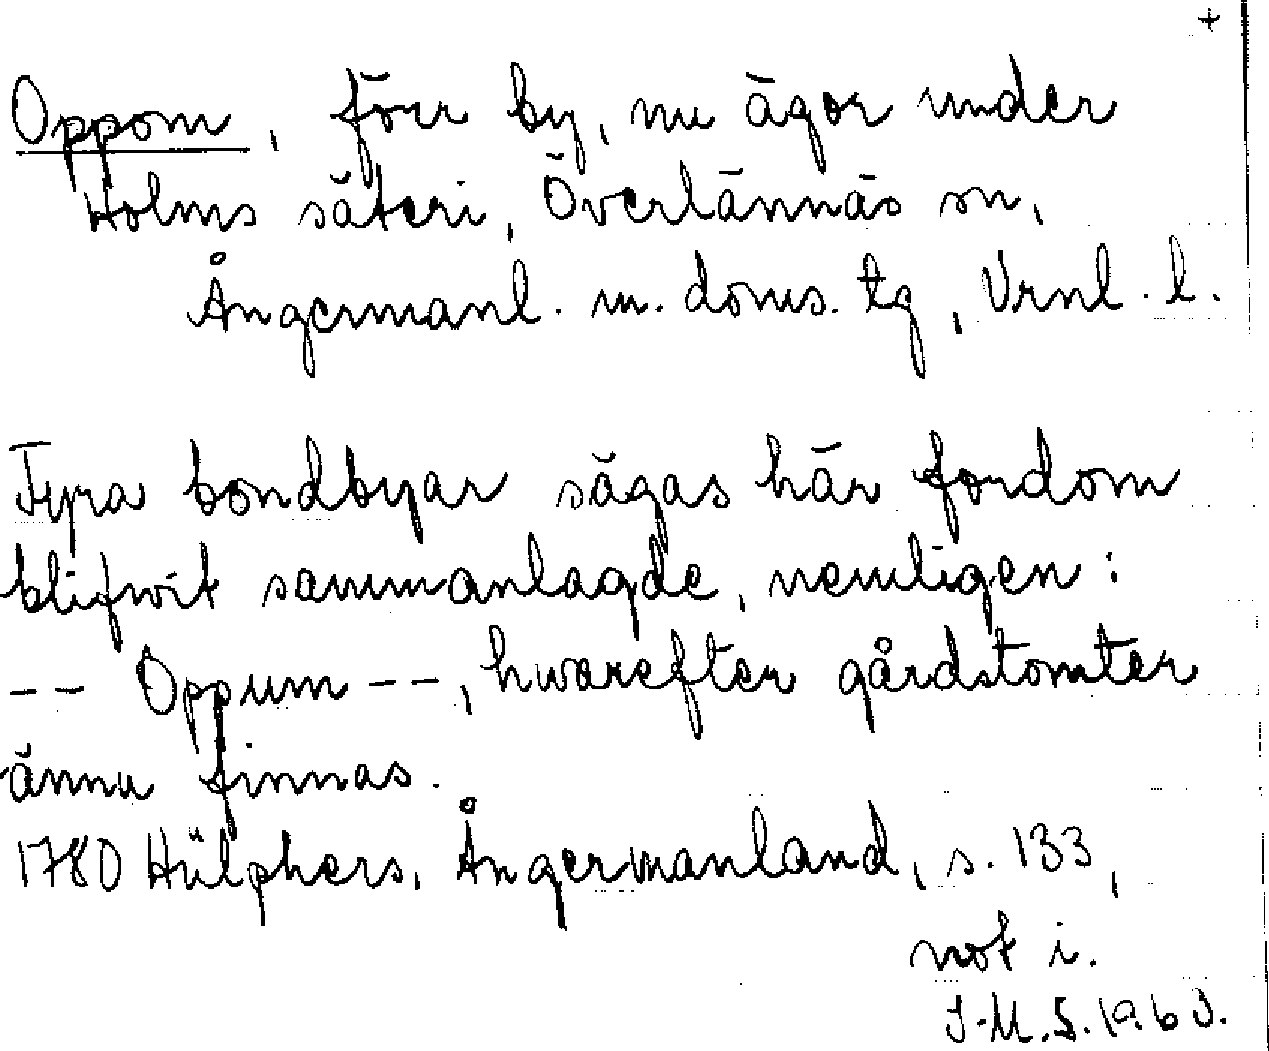 +
Oppom, förr by, nu ägor under
Holms säteri, Överlännäs sn,
Ångermanl. m. doms. tg, Vrnl. l.
Fyra bondbyar sägas här fordom
blifwit sammanlagde, nemligen:
-- Oppum --, hwarefter gårdstomter
ännu finnas.
1780 Hülphers, Ångermanland, s. 133,
not i.
J.M.S. 1963.